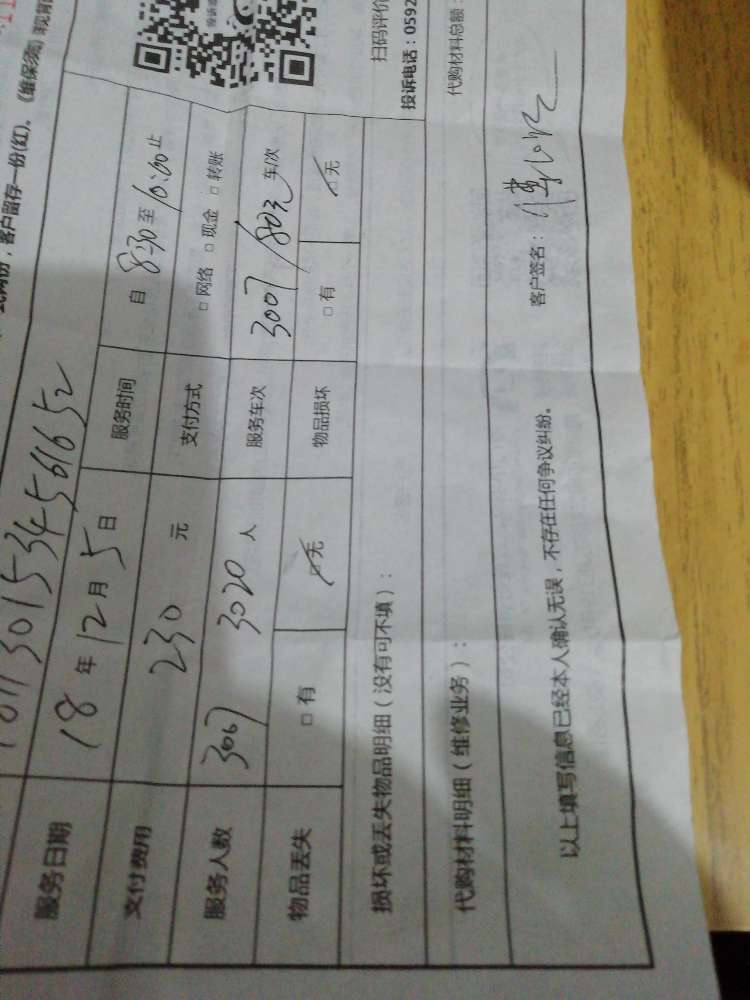 客户留存一份(红)。
301534561652
服务日期 18 年 12 月 5 日 服务时间 自 8:30 至 10:00 止
支付费用 230 元 支付方式 □ 网络 □ 现金 □ 转账
服务人数 3067 3020 人 服务车次 3007 /80元 车/次
物品丢失 □ 有 □ 无 物品损坏 □ 有 □ 无
损坏或丢失物品明细（没有可不填）：
扫码评价
投诉电话：0592
代购材料明细（维修业务）： 代购材料总额：
客户签名：
以上填写信息已经本人确认无误，不存在任何争议纠纷。